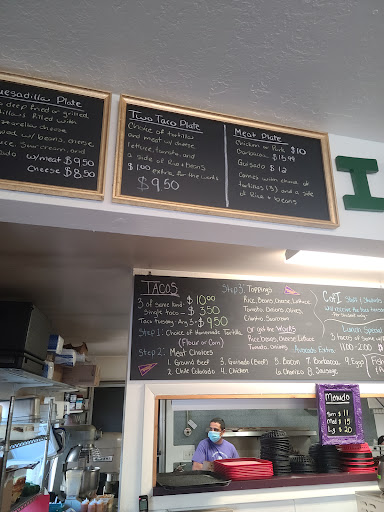 uesadilla Plate
deep fried or grilled
filled with
cheese
with beans, cheese
sour cream, and
w/meat $9.50
cheese $8.50
Two Taco Plate
Choice of tortillas
and meat w/ cheese
lettuce, tomato, and
a side of Rice & beans
$1.00 extra for the works
$9.50
Meat Plate
Chicken or Pork $10
Barbacoa $15.99
Guisado $12
Comes with choice of
tortillas (3) and a side
of Rice & beans
I
TACOS
3 of same kind - $10.00
Single taco - $3.50
Taco Tuesday - Any 3 - $9.50
Step 1: Choice of Homemade Tortilla
(Flour or Corn)
Step 2: Meat Choices
1. Ground Beef 3. Guisado (Beef) 5. Bacon 7. Barbacoa 9. Eggs
2. Chile Colorado 4. Chicken 6. Chorizo 8. Sausage
Step 3: Toppings
Rice, Beans, Cheese, Lettuce
Tomato, Onions, Olives,
Cilantro, Sourcream
or get the Works
Rice, Beans, Cheese, Lettuce
Tomato, Onions,
Avocado Extra
CofI Staff & Students
Special
3 tacos
11:00 - 2:00
Menudo
Sm $11
Md $15
Lg $20